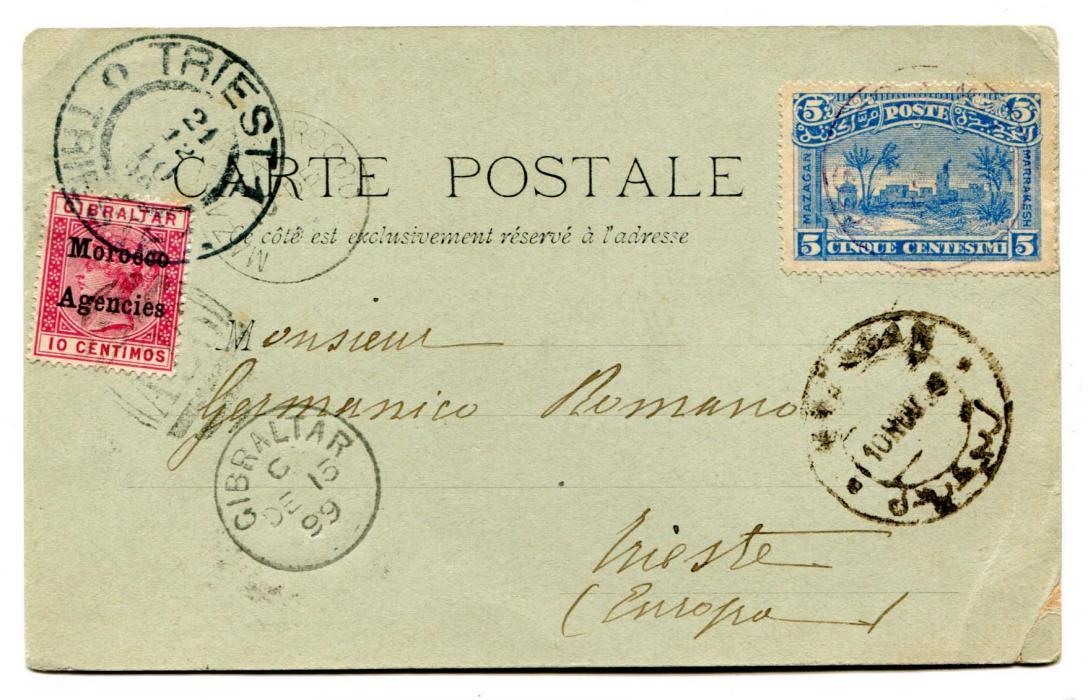 TRIEST
21
12
CARTE POSTALE
Ce côté est exclusivement réservé à l'adresse
GIBRALTAR
Morocco
Agencies
10 CENTIMOS
5 POSTE 5
MAZAGAN
MARRAKESH
5 CINQUE CENTESIMI 5
Monsieur
Germanico Romano
Trieste
(Europa)
GIBRALTAR
C
DE 15
99
10 NOV